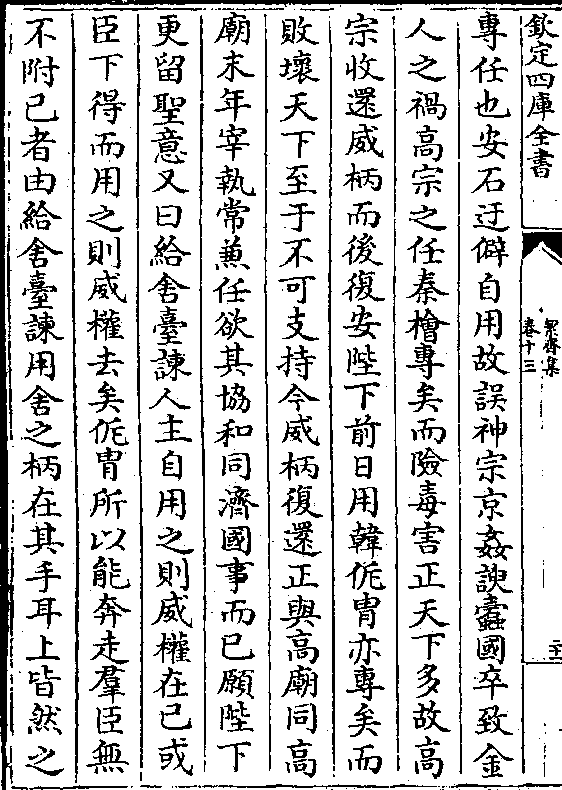 欽定四庫全書
絜齋集
卷十三
專任也安石迂僻自用故誤神宗京姦諛蠧國卒致金
人之禍高宗之任秦檜專矣而險毒害正天下多故高
宗收還威柄而後復安陛下前日用韓侂胄亦專矣而
敗壞天下至于不可支持今威柄復還正與高廟同高
廟末年宰執常兼任欲其協和同濟國事而已願陛下
更留聖意又曰給舍臺諫人主自用之則威權在已或
臣下得而用之則威權去矣侂胄所以能奔走羣臣無
不附已者由給舍臺諫用舍之柄在其手耳上皆然之